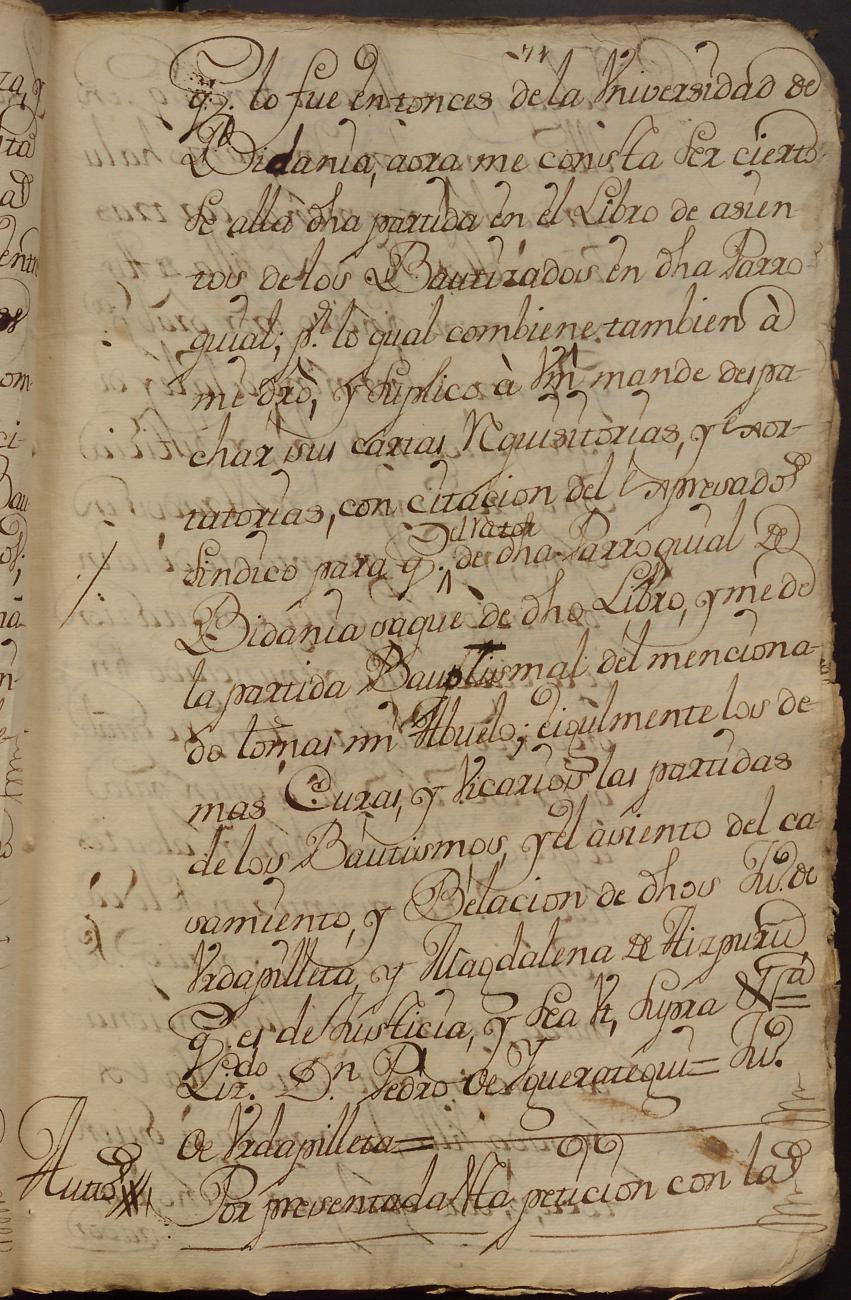 71
qͤ. lo fue entonces de la Vniversidad de
Bidania, aora me consta ser cierto
se alla dha partida en el Libro de asien
tos de los Bautizados en dha Parro-
quial; pͬ. lo qual combiene tambien à
me dro, y Suplico à Vm mande despa-
char sus cartas Nquisitorias, y Exor-
tatorias, con citacion del Expresado
Sindico para q. el Rator de dha Parroquial de
Bidania saque de dho Libro, y me de
la partida Bautismal del menciona-
do tomas mi Abuelo; eigulmente los de
mas Curas, y Vicarios las partidas
de los Bautismos, y el àsiento del ca-
samiento, y Belacion de dhos Ju.º de
Vrdapilleta, y Magdalena de Aizpuru
q. es de Justicia, y sea Vt, Supra &ra=
Lizᵈᵒ. Dⁿ. Pedro de Yguerategui= Ju.º
de Vrdapilleta=
Autto
Por presentada Esta peticion con la